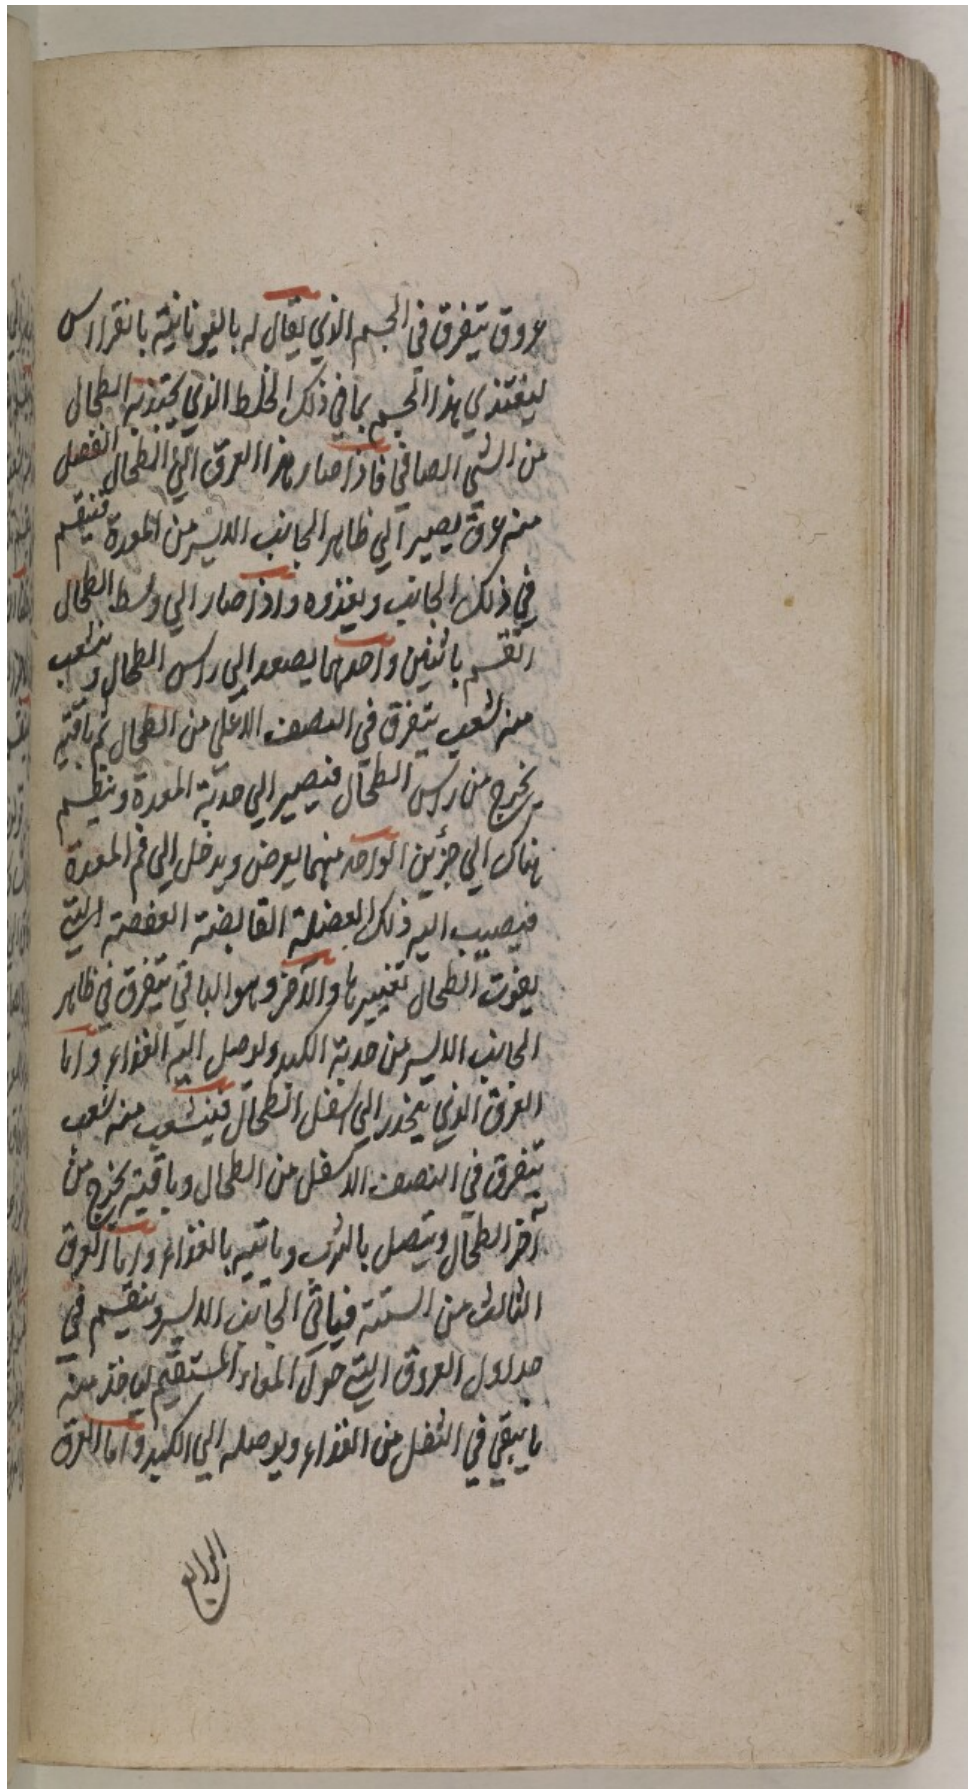 عروق يتفرق في الجسم الذي يقال له باليونانية بانقراس
ليغتذي هذا الجسم بما في ذلك الخلط الذي يجتذبه الطحال
من الشي الصافي فاذا صار هذا العرق الي الطحال انفصل
منه عرق يصير الي ظاهر الجانب الايسر من المعدة فينقسم
في ذلك الجانب ويغذوه واذا صار الي وسط الطحال
انقسم باثنين واحدهما يصعد الي راس الطحال ويتشعب
منه شعب يتفرق في النصف الاعلي من الطحال ثم باقيه
يخرج من راس الطحال فيصير الي حدبة المعدة وينقسم
هناك الي جزئين الواحد منهما يعرض ويدخل الي فم المعدة
فيصيب اليه ذلك الفضلة القابضة العفصة التي
يفوت الطحال تغييرها والآخر وهو الباقي يتفرق في ظاهر
الجانب الايسر من حدبة الكبد ويوصل اليه الغذاء واما
العرق الذي ينحدر الي اسفل الطحال فيتشعب منه شعب
يتفرق في النصف الاسفل من الطحال وباقيه يخرج من
آخر الطحال ويتصل بالثرب وياتيه بالغذاء واما العرق
الثالث من الستة فياتي الجانب الايسر وينقسم في
جداول العروق التي حول المعاء المستقيم لياخذ منه
ما يبقي في الثفل من الغذاء ويوصله الي الكبد واما العرق
الرابع